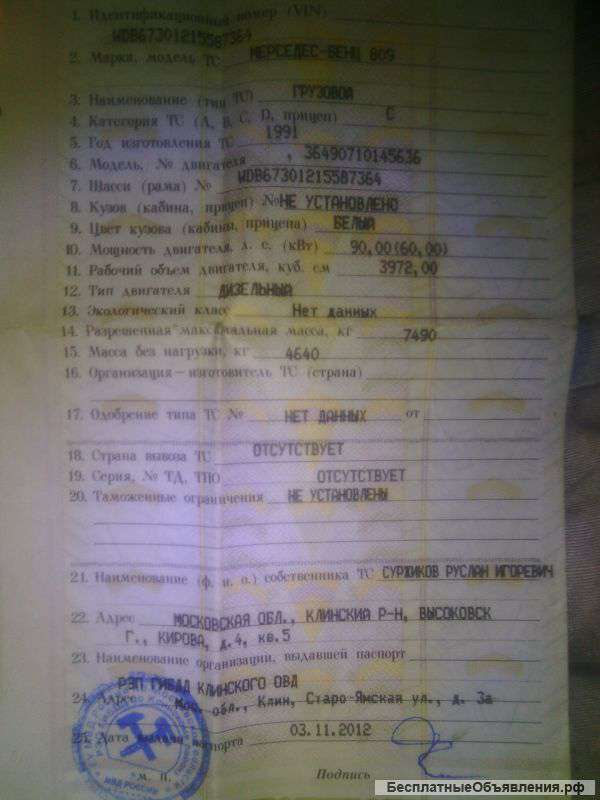 1. Идентификационный номер (VIN)
WDB67301215587364
2. Марка, модель ТС МЕРСЕДЕС-БЕНЦ 809
3. Наименование (тип ТС) ГРУЗОВОЙ
4. Категория ТС (A, B, C, D, прицеп) C
5. Год изготовления ТС 1991
6. Модель, № двигателя , 36490710145636
7. Шасси (рама) № WDB67301215587364
8. Кузов (кабина, прицеп) № НЕ УСТАНОВЛЕНО
9. Цвет кузова (кабины, прицепа) БЕЛЫЙ
10. Мощность двигателя, л. с. (кВт) 90,00(60,00)
11. Рабочий объем двигателя, куб. см 3972,00
12. Тип двигателя ДИЗЕЛЬНЫЙ
13. Экологический класс Нет данных
14. Разрешенная максимальная масса, кг 7490
15. Масса без нагрузки, кг 4640
16. Организация-изготовитель ТС (страна)
17. Одобрение типа ТС № НЕТ ДАННЫХ от
18. Страна вывоза ТС ОТСУТСТВУЕТ
19. Серия, № ТД, ТПО ОТСУТСТВУЕТ
20. Таможенные ограничения НЕ УСТАНОВЛЕНЫ
21. Наименование (ф. и. о.) собственника ТС СУРЖИКОВ РУСЛАН ИГОРЕВИЧ
22. Адрес МОСКОВСКАЯ ОБЛ., КЛИНСКИЙ Р-Н, ВЫСОКОВСК
Г., КИРОВА, д.4, кв.5
23. Наименование организации, выдавшей паспорт
РЭП ГИБДД КЛИНСКОГО ОВД
24. Адрес Мос.обл., Клин, Старо-Ямская ул., д. 3а
25. Дата выдачи паспорта 03.11.2012
М. П. Подпись
МВД РОССИИ
БесплатныеОбъявления.рф